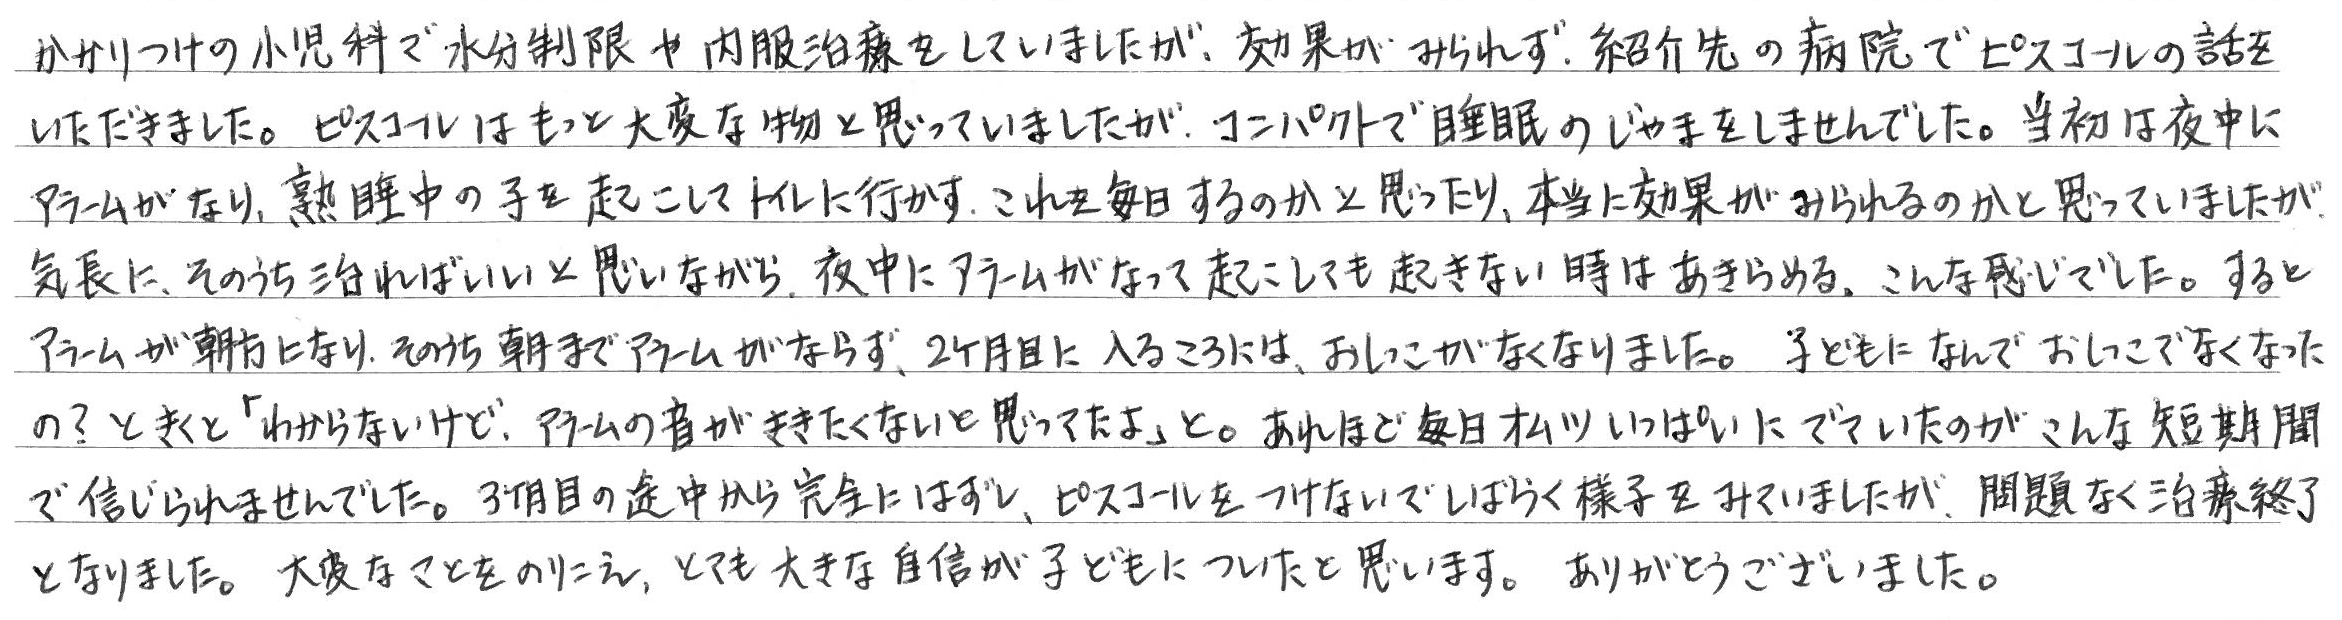 かかりつけの小児科で水分制限や内服治療をしていましたが、効果がみられず、紹介先の病院でピスコールの話を
いただきました。ピスコールはもっと大変な物と思っていましたが、コンパクトで睡眠のじゃまをしませんでした。当初は夜中に
アラームがなり、熟睡中の子を起こしてトイレに行かす、これを毎日するのかと思ったり、本当に効果がみられるのかと思っていましたが、
気長に、そのうち治ればいいと思いながら、夜中にアラームがなって起こしても起きない時はあきらめる、こんな感じでした。すると
アラームが朝方になり、そのうち朝までアラームがならず、2ヶ月目に入るころには、おしっこがなくなりました。子どもになんでおしっこでなくなった
の?ときくと「わからないけど、アラームの音がききたくないと思ってたよ」と。あれほど毎日オムツいっぱいにでていたのがこんな短期間
で信じられませんでした。3ヶ月目の途中から完全にはずし、ピスコールをつけないでしばらく様子をみていましたが、問題なく治療終了
となりました。大変なことをのりこえ、とても大きな自信が子どもについたと思います。ありがとうございました。